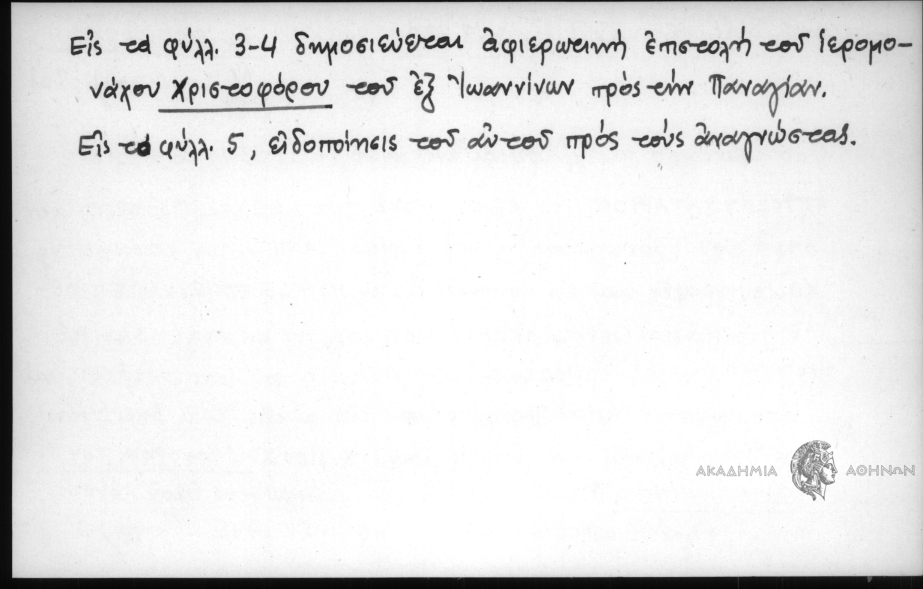 Εἰς τὰ φύλλ. 3-4 δημοσιεύεται ἀφιερωτική ἐπιστολή τοῦ ἱερομο-
νάχου Χριστοφόρου τοῦ ἐξ Ἰωαννίνων πρὸς τήν Παναγίαν.
Εἰς τὸ φύλλ. 5, εἰδοποίησις τοῦ αὐτοῦ πρός τούς ἀναγνώστας.
ΑΚΑΔΗΜΙΑ ΑΘΗΝΩΝ